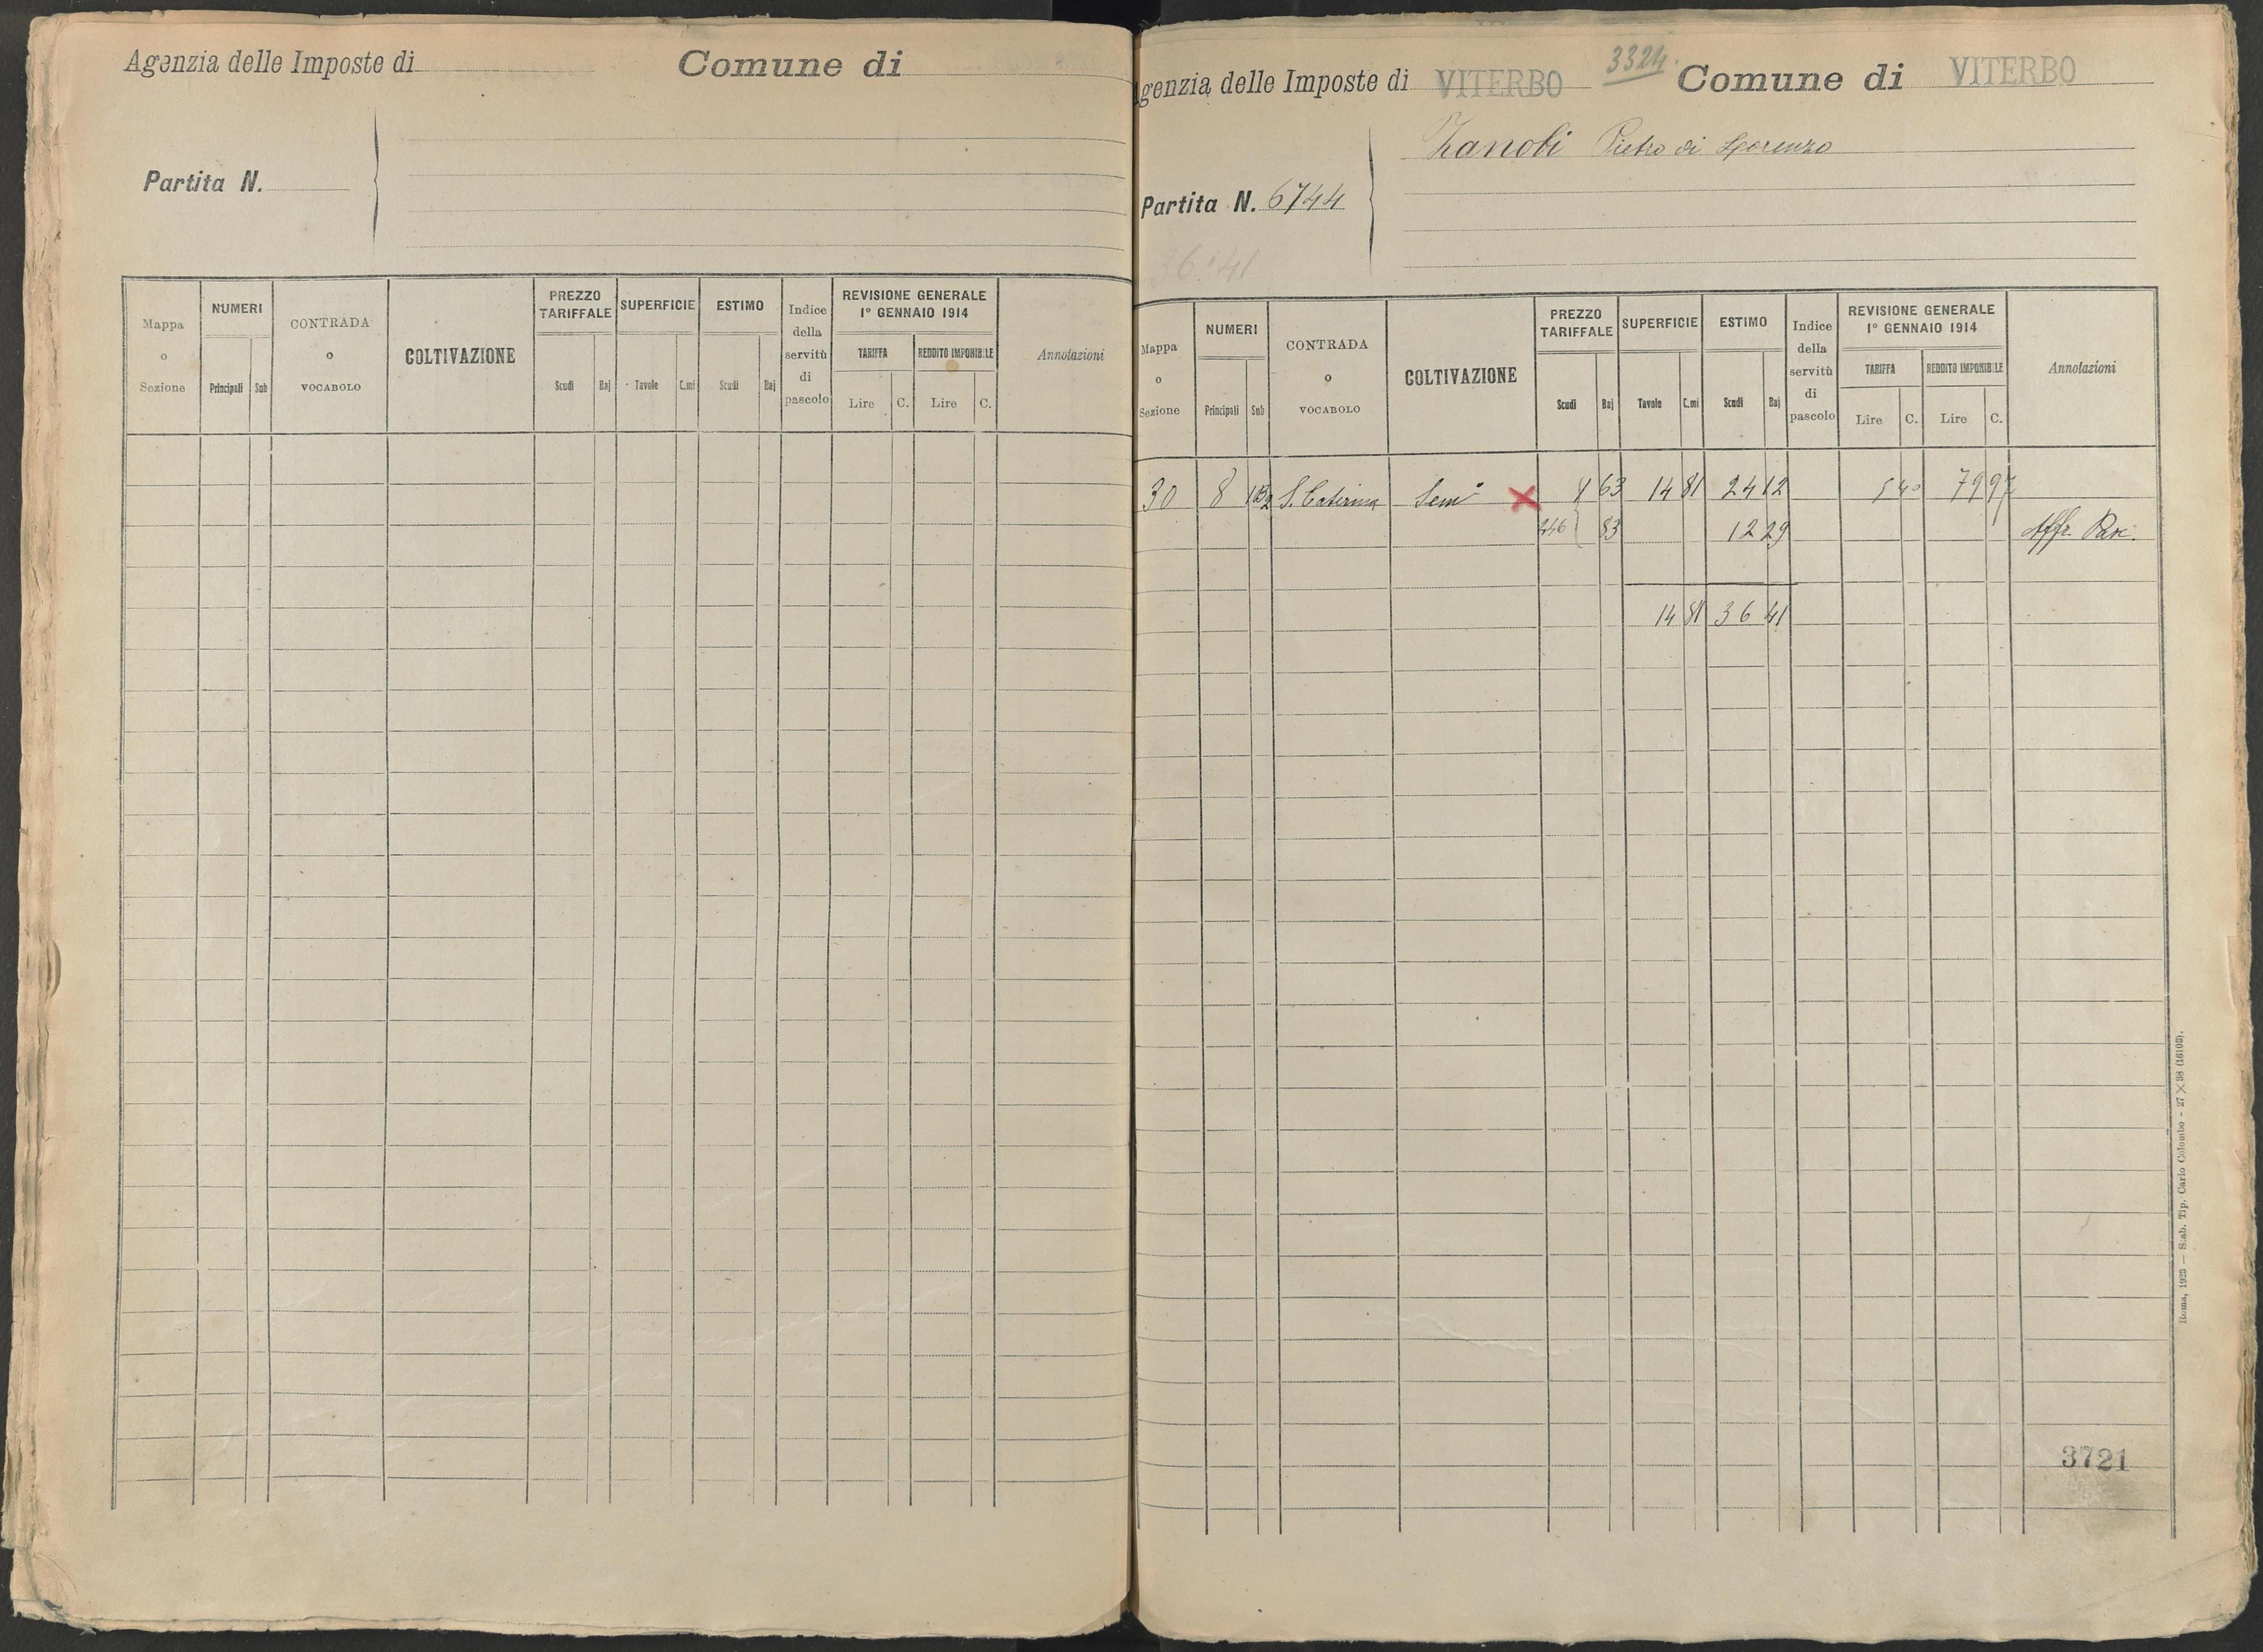 Agenzia delle Imposte di Comune di
Partita N.
Mappa o Sezione
NUMERI
Principali Sub
CONTRADA o VOCABOLO
COLTIVAZIONE
PREZZO TARIFFALE
Scudi Baj
SUPERFICIE
Tavole C.mi
ESTIMO
Scudi Baj
Indice della servitù di pascolo
REVISIONE GENERALE
1° GENNAIO 1914
TARIFFA REDDITO IMPONIBILE
Lire C. Lire C.
Annotazioni
3324
Agenzia delle Imposte di VITERBO Comune di VITERBO
Zanobi Pietro di Lorenzo
Partita N. 6744
36:41
Mappa o Sezione
NUMERI
Principali Sub
CONTRADA o VOCABOLO
COLTIVAZIONE
PREZZO TARIFFALE
Scudi Baj
SUPERFICIE
Tavole C.mi
ESTIMO
Scudi Baj
Indice della servitù di pascolo
REVISIONE GENERALE
1° GENNAIO 1914
TARIFFA REDDITO IMPONIBILE
Lire C. Lire C.
Annotazioni
30 8 S. Caterina Sem° 63 14 81 24 12 5 40 79 97
83 12 29 Affr. Pasc.
14 81 36 41
3721
Roma, 1923 — Stab. Tip. Carlo Colombo - 27 × 38 (16103).